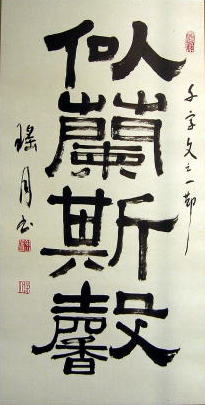 千字文之一節
似蘭斯馨
瑤月書